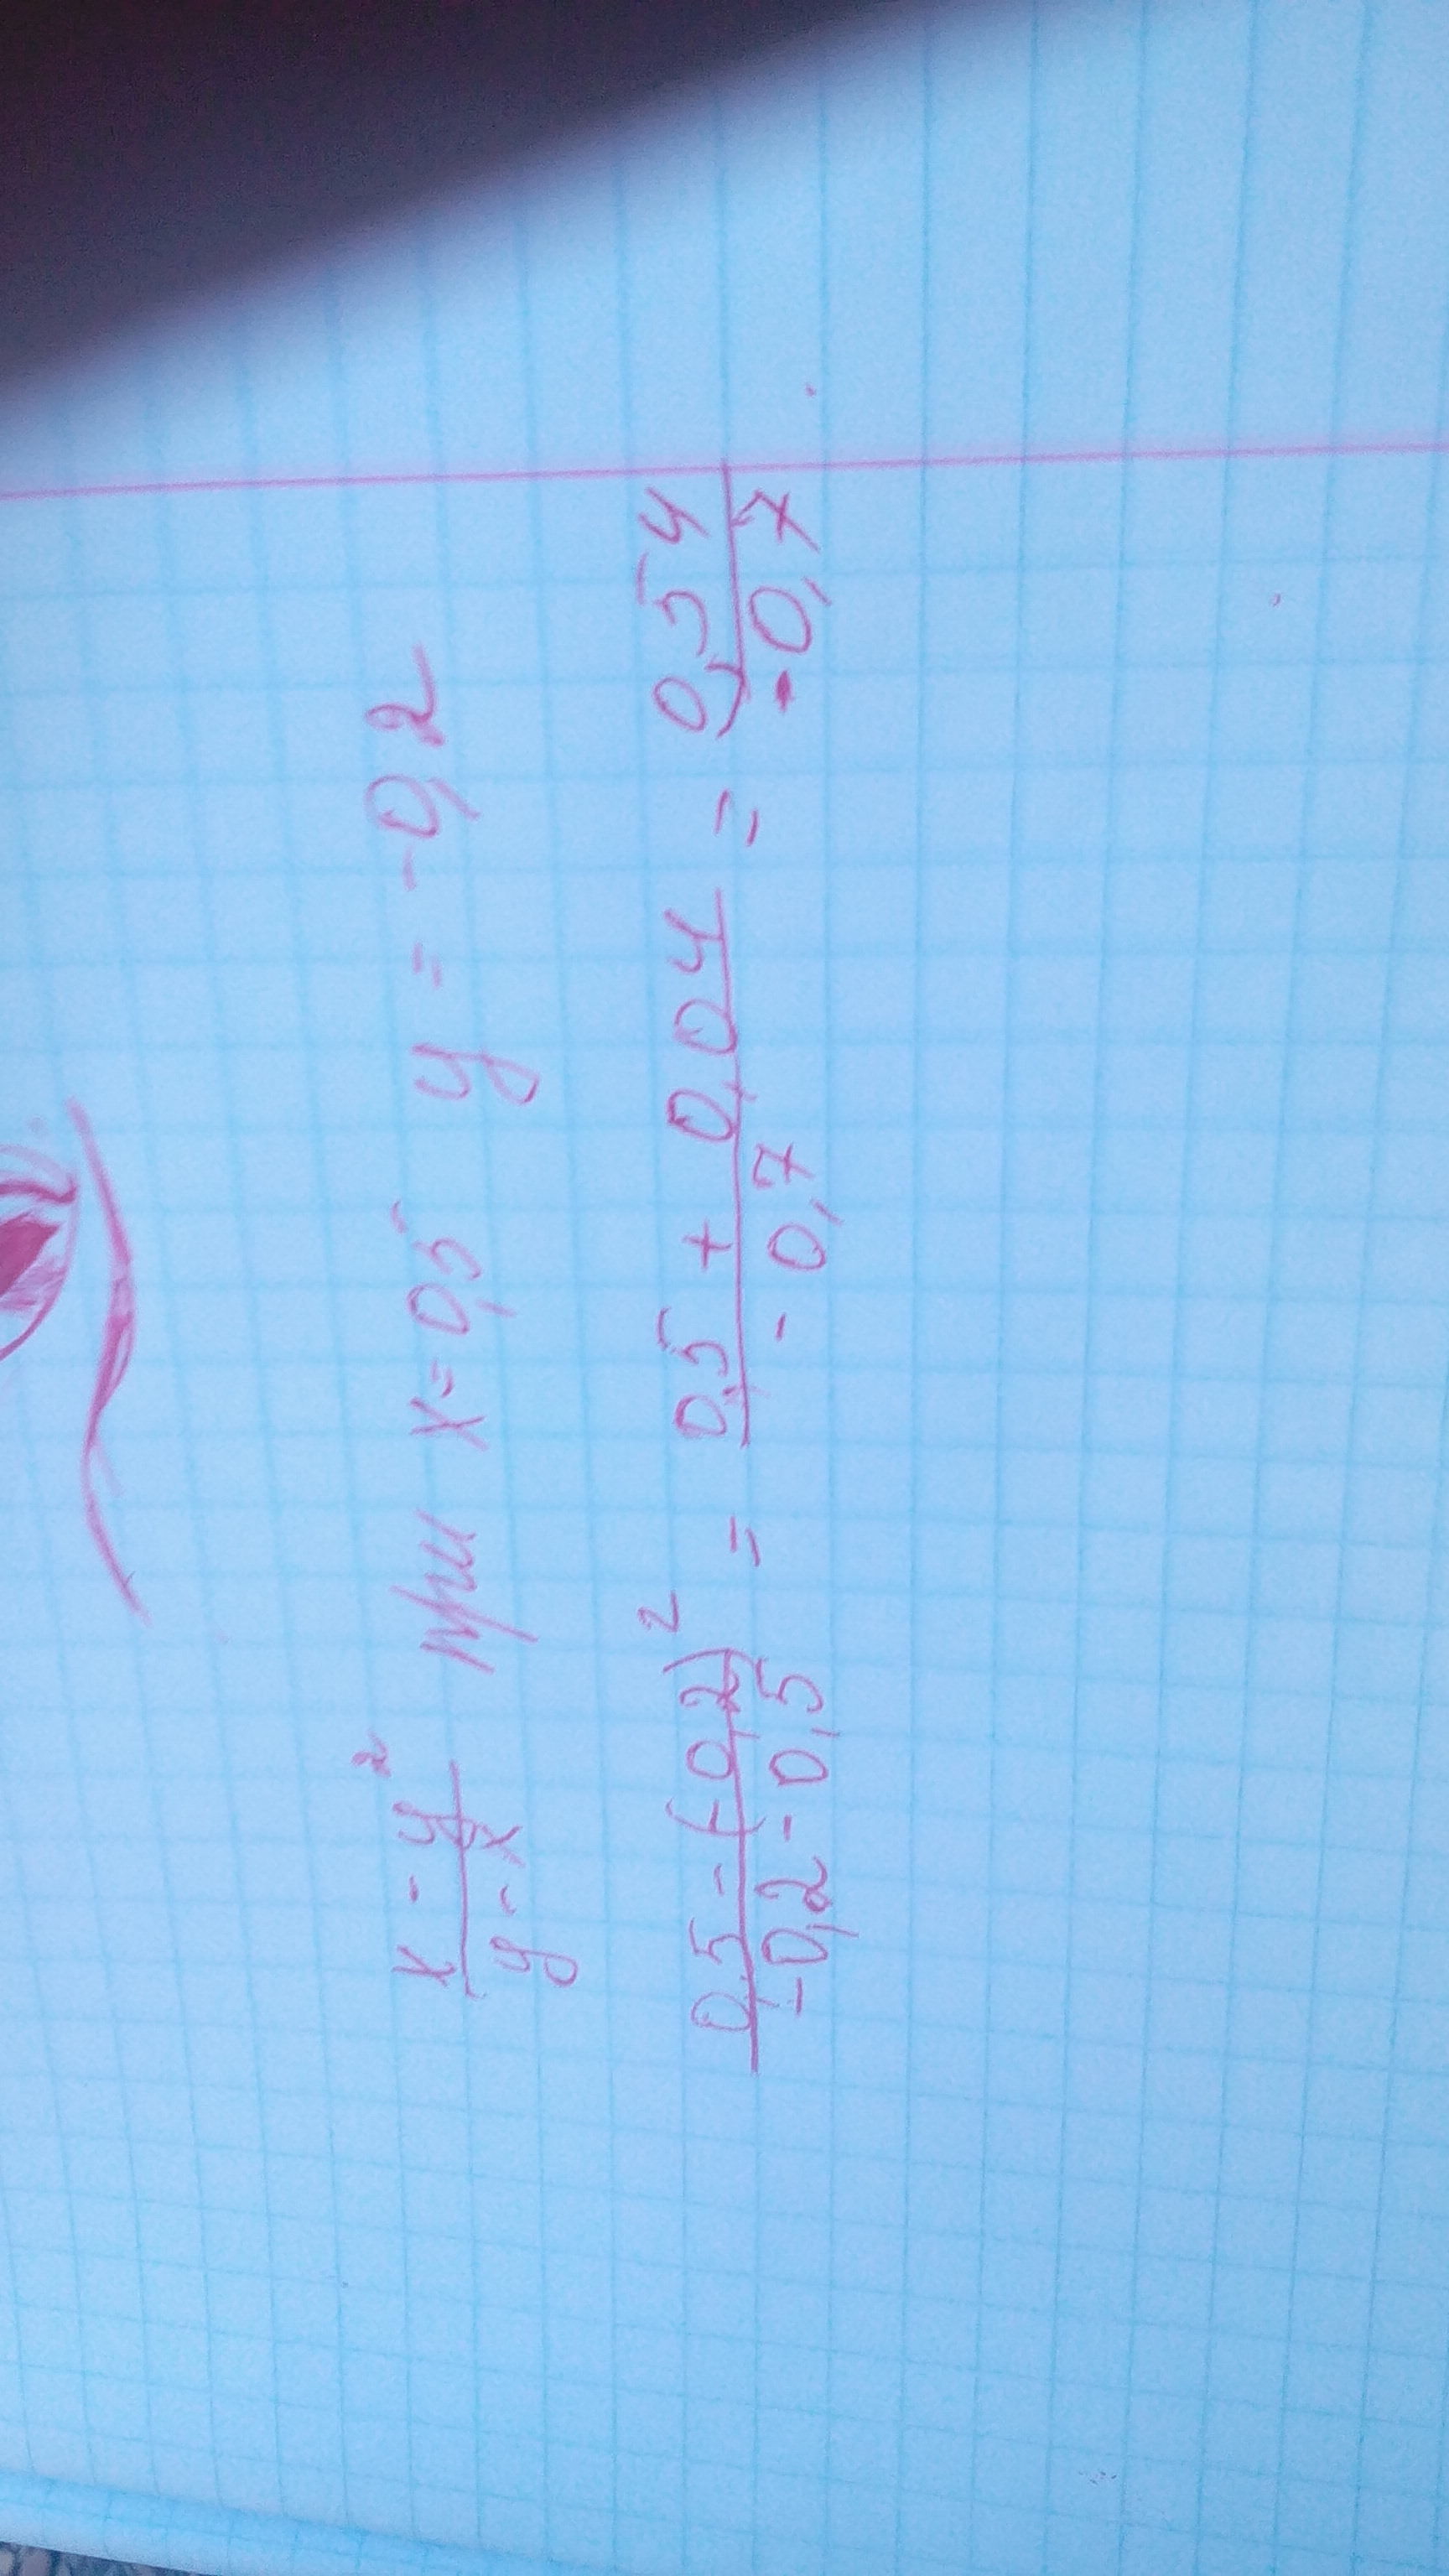 (x - y²)/(y - x) при x = 0,5 y = -0,2
(0,5 - (-0,2)²)/(-0,2 - 0,5) = (0,5 + 0,04)/(-0,7) = 0,54/(-0,7)